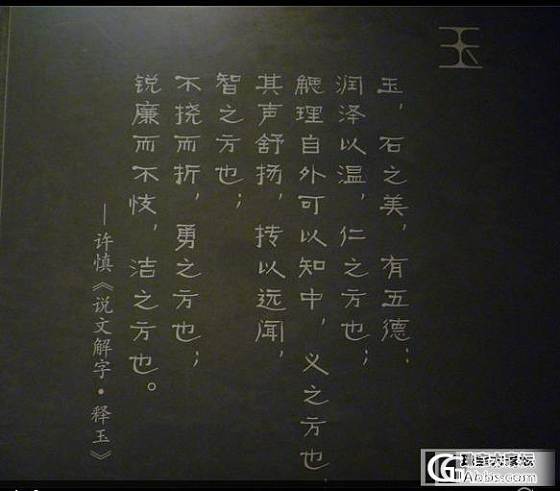 玉
玉，石之美，有五德：
润泽以温，仁之方也；
䚡理自外可以知中，义之方也，
其声舒扬，抟以远闻，
智之方也；
不挠而折，勇之方也；
锐廉而不忮，洁之方也。
—许慎《说文解字·释玉》
iAbbs.com